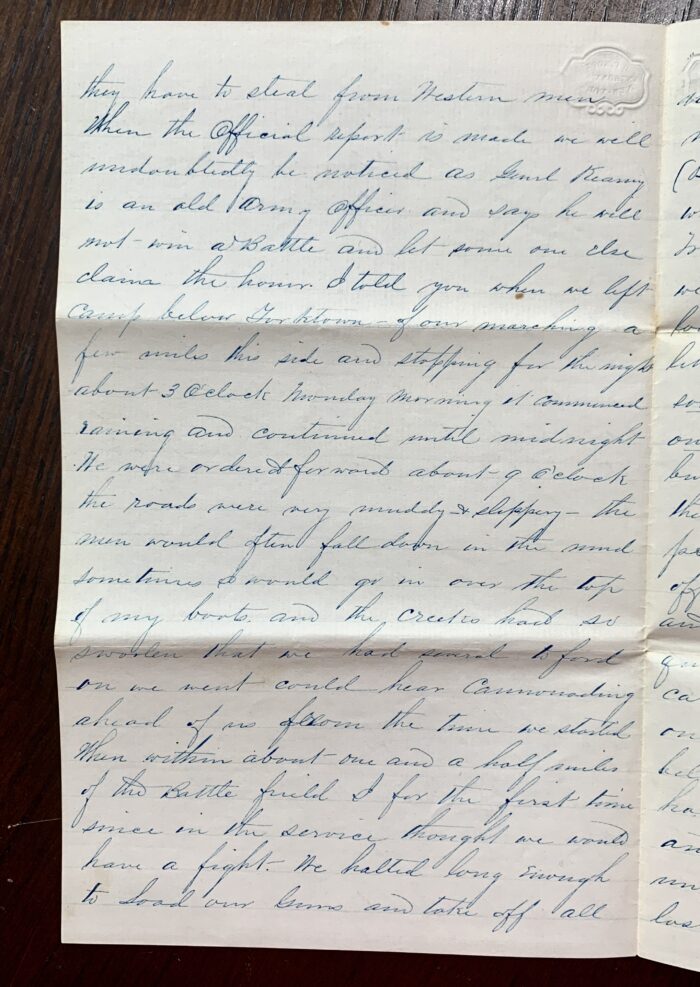 they have to steal from Western men
When the Official report is made we will
undoubtedly be noticed as Genl Kearny
is an old Army Officer and says he will
not win a Battle and let some one else
claim the honor. I told you when we left
camp below Yorktown – of our marching a
few miles this side and stopping for the night
about 3 O'clock Monday morning it commenced
raining and continued until midnight
We were ordered forward about 9 O'clock
the roads were very muddy & slippery – the
men would often fall down in the mud
sometimes I would go in over the top
of my boots. and the creeks had so
swoolen that we had several to ford
on we went could hear Cannonading
ahead of us from the time we started
When within about one and a half miles
of the Battle field I for the first time
since in the service thought we would
have a fight. We halted long enough
to load our Guns and take off all
(
we
on
the
of
and
ca
on